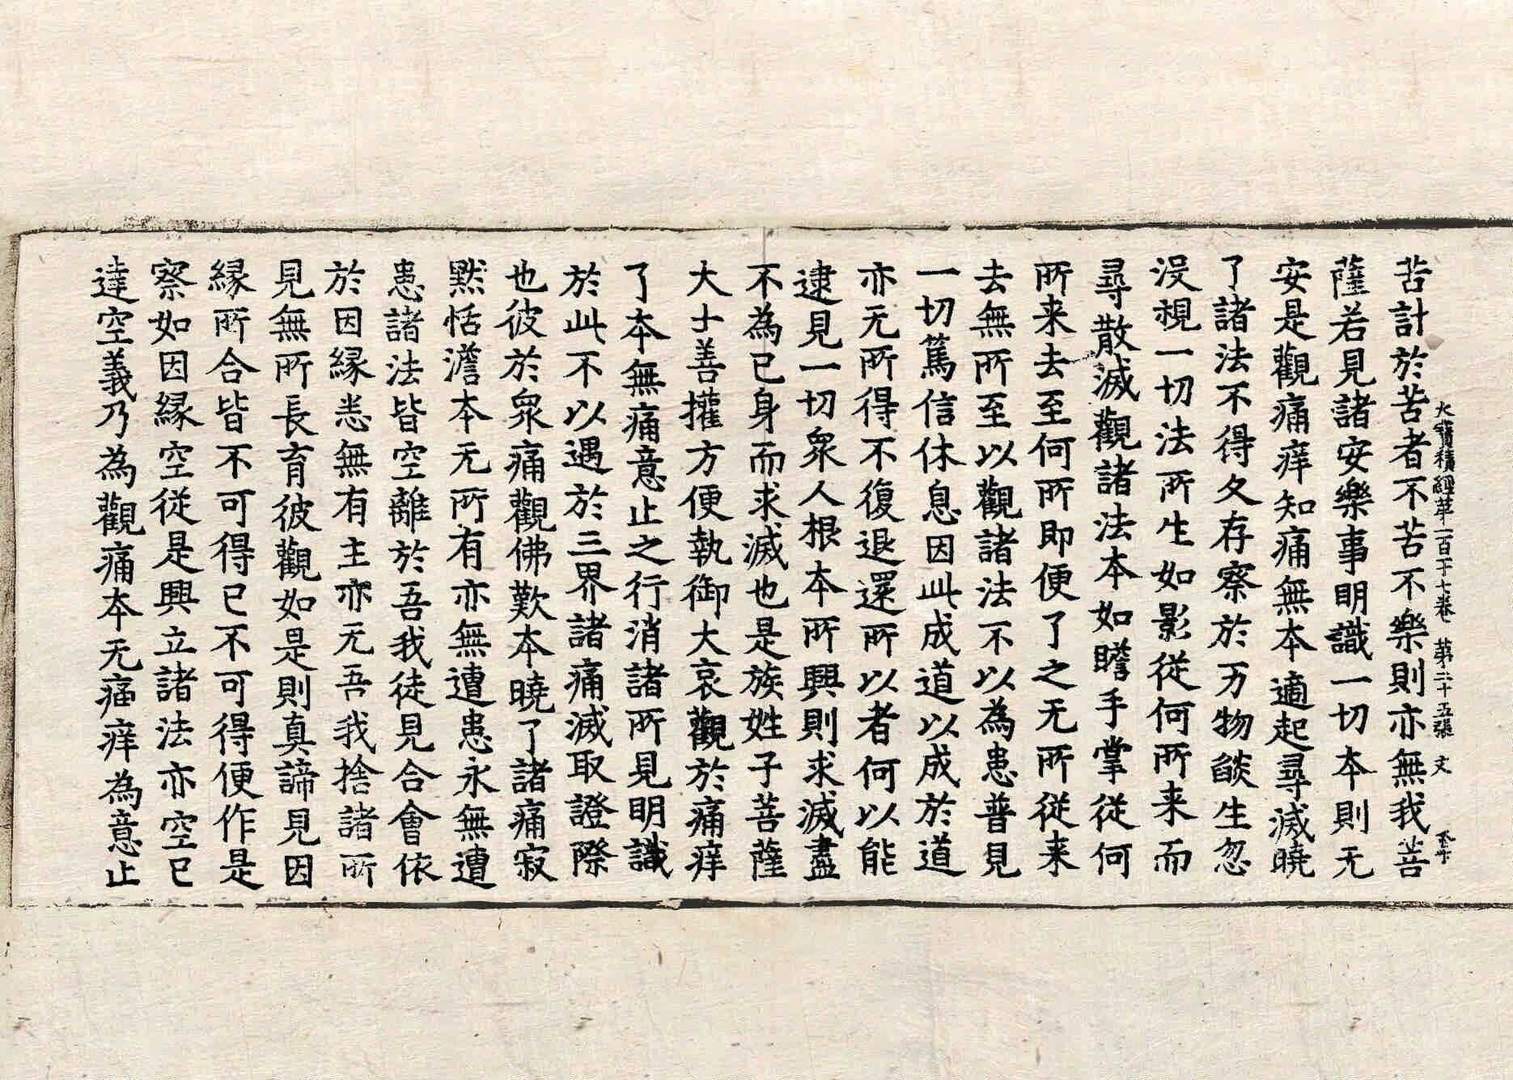 苦計於苦者不苦不樂則亦無我菩
大寶積經第一百一十七卷 第二十五張 文
薩若見諸安樂事明識一切本則无
安是觀痛痒知痛無本適起尋滅曉
了諸法不得久存察於万物燄生忽
没視一切法所生如影從何所来而
尋散滅觀諸法本如瞪手掌從何
所来去至何所即便了之无所從来
去無所至以觀諸法不以為患普見
一切篤信休息因此成道以成於道
亦无所得不復退還所以者何以能
逮見一切衆人根本所興則求滅盡
不為已身而求滅也是族姓子菩薩
大士善攉方便執御大哀觀於痛痒
了本無痛意止之行消諸所見明識
於此不以遇於三界諸痛滅取證際
也彼於衆痛觀佛歎本曉了諸痛寂
黙恬澹本无所有亦無遭患永無遭
患諸法皆空離於吾我徒見合會依
於因縁恙無有主亦无吾我捨諸所
見無所長育彼觀如是則真諦見因
縁所合皆不可得已不可得便作是
察如因縁空從是興立諸法亦空已
達空義乃為觀痛本无痛痒為意止